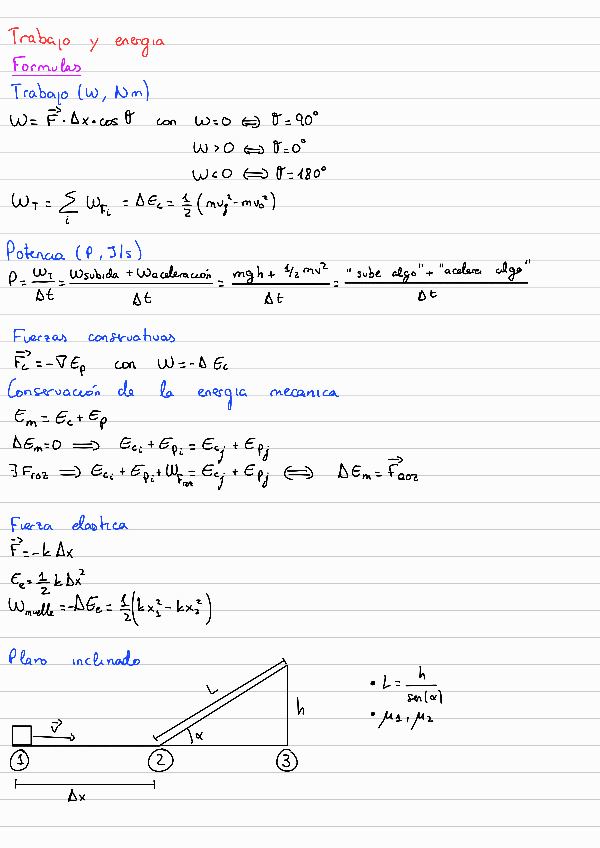 Trabajo y energia
Formulas
Trabajo (W, Nm)
W = F⃗ · Δx · cos θ con W=0 ⇔ θ=90°
W > 0 ⇔ θ=0°
W < 0 ⇔ θ=180°
W_T = Σ_i W_{F_i} = ΔE_c = 1/2 (mv_f² - mv_0²)
Potencia (P, J/s)
P = W_T/Δt = (W subida + W aceleración)/Δt = (mgh + 1/2 mv²)/Δt = ("sube algo" + "acelera algo")/Δt
Fuerzas consrvativas
F_c⃗ = -∇E_p con W = -Δ E_c
Conservación de la energia mecanica
E_m = E_c + E_p
ΔE_m = 0 ⟹ E_{c_i} + E_{p_i} = E_{c_j} + E_{p_j}
∃ F_roz ⟹ E_{c_i} + E_{p_i} + W_{F_roz} = E_{c_j} + E_{p_j} ⟺ ΔE_m = F⃗_roz
Fuerza elastica
F⃗ = -k Δx
E_e = 1/2 k Δx²
W_muelle = -ΔE_e = 1/2 (k x_1² - k x_2²)
Plano inclinado
L
• L = h/sen(α)
h
• μ1, μ2
v⃗
α
1 2 3
Δx